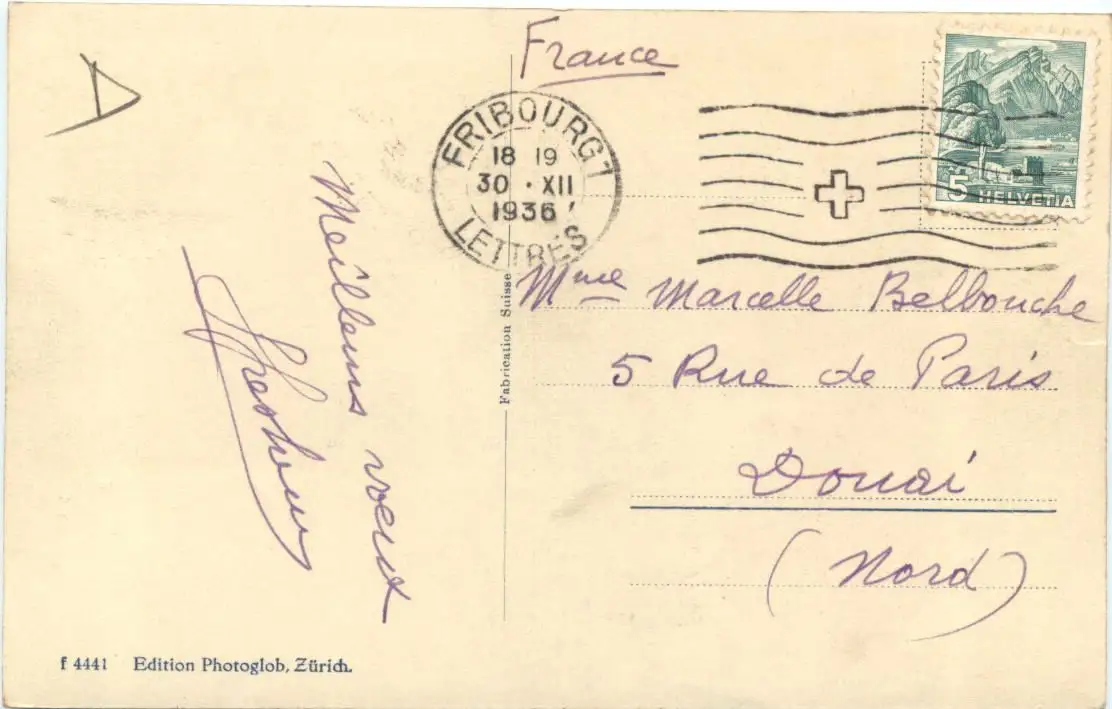 France
FRIBOURG 1
18 19
30 · XII
1936
LETTRES
5 HELVETIA
Meilleurs vœux
Fabrication Suisse
Mme Marcelle Belbouche
5 Rue de Paris
Douai
(Nord)
f 4441 Edition Photoglob, Zürich.